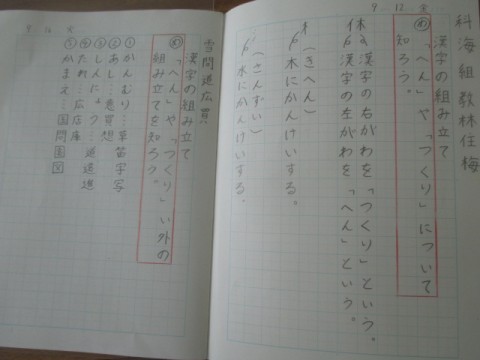 9 12
科海組教林住梅
漢字の組み立て
め 「へん」や「つくり」について
知ろう。
休 漢字の右がわを「つくり」という。
休 漢字の左がわを「へん」という。
(きへん)
木にかんけいする。
(さんずい)
水にかんけいする。
9 12
雪間道広買
漢字の組み立て
め 「へん」や「つくり」い外の
組み立てを知ろう。
①かんむり…草笛字写
②あし…悪買想
③しんにょう…
④たれ…広店庫
⑤かまえ…国問園図